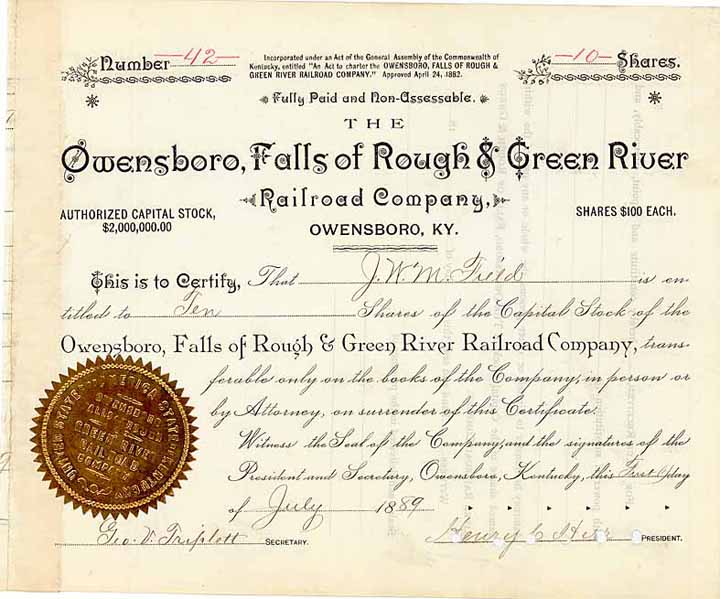 Number —42—
Incorporated under an Act of the General Assembly of the Commonwealth of
Kentucky, entitled "An Act to charter the OWENSBORO, FALLS OF ROUGH &
GREEN RIVER RAILROAD COMPANY." Approved April 24, 1882.
—10— Shares.
Fully Paid and Non-Assessable.
THE
Owensboro, Falls of Rough & Green River
Railroad Company,
AUTHORIZED CAPITAL STOCK,
$2,000,000.00
OWENSBORO, KY.
SHARES $100 EACH.
This is to Certify, That J. W. M. Field is en-
titled to Ten Shares of the Capital Stock of the
Owensboro, Falls of Rough & Green River Railroad Company, trans-
ferable only on the books of the Company, in person or
by Attorney, on surrender of this Certificate.
Witness the Seal of the Company, and the signatures of the
President and Secretary, Owensboro, Kentucky, this First day
of July 1889
Geo. V. Triplett SECRETARY.
Henry C PRESIDENT.
GREEN RIVER
RAILROAD